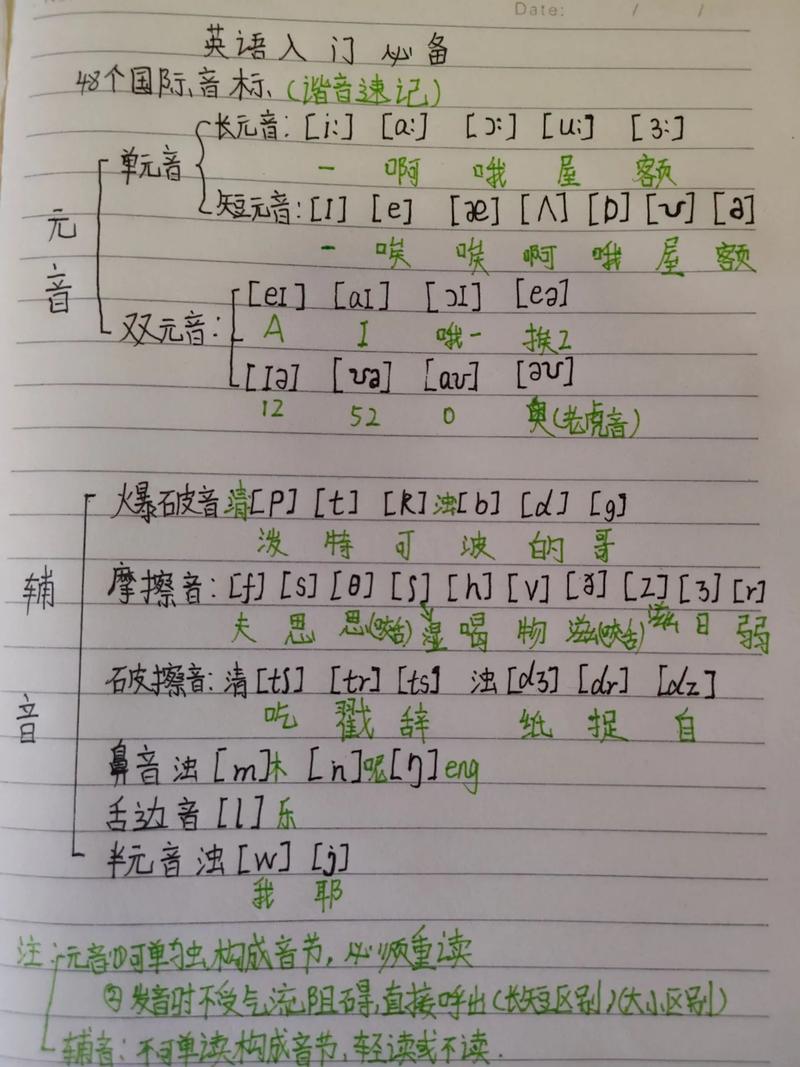 Date: / /
英语入门必备
48个国际音标、(谐音速记)
长元音: [i:] [a:] [ɔ:] [u:] [ɜ:]
单元音
一 啊 哦 屋 额
短元音: [I] [e] [æ] [Λ] [ɒ] [ʊ] [ə]
元音
一 唉 唉 啊 哦 屋 额
[eI] [aI] [ɔI] [eə]
双元音: A I 哦一 挨2
[Iə] [ʊə] [aʊ] [əʊ]
12 52 0 奥(老虎音)
爆破音 清[P] [t] [k] 浊[b] [d] [g]
泼 特 可 波 的 哥
辅音
摩擦音: [f] [s] [θ] [ʃ] [h] [v] [ð] [z] [ʒ] [r]
夫 思 思(咬舌) 湿 喝 物 滋(咬舌) 滋 日 弱
破擦音: 清 [tʃ] [tr] [ts] 浊 [dʒ] [dr] [dz]
吃 戳 辞 纸 捉 自
鼻音 浊 [m]木 [n]呢 [ŋ] eng
舌边音 [l] 乐
半元音 浊 [w] [j]
我 耶
注: 元音:①可单独构成音节, 必须重读
② 发音时不受气流阻碍,直接呼出(长短区别)(大小区别)
辅音: 不可单读构成音节, 轻读或不读.